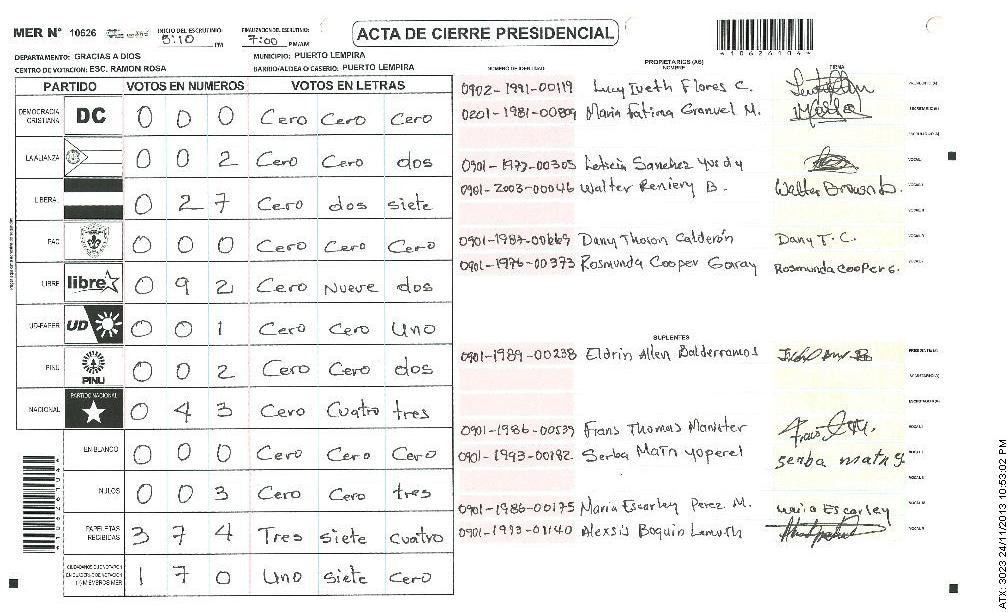 MER N° 10626 INICIO DEL ESCRUTINIO: 5:10 PM FINALIZACION DEL ESCRUTINIO: 7:00 PM/AM
ACTA DE CIERRE PRESIDENCIAL
4106261044
DEPARTAMENTO: GRACIAS A DIOS MUNICIPIO: PUERTO LEMPIRA
CENTRO DE VOTACION: ESC. RAMON ROSA BARRIO/ALDEA O CASERIO: PUERTO LEMPIRA
PARTIDO VOTOS EN NUMEROS VOTOS EN LETRAS
DEMOCRACIA CRISTIANA DC 0 0 0 Cero Cero Cero
LA ALIANZA 0 0 2 Cero Cero dos
LIBERAL 0 2 7 Cero dos siete
PAC 0 0 0 Cero Cero Cero
LIBRE libre 0 9 2 Cero Nueve dos
UD-FAPER UD 0 0 1 Cero Cero Uno
PINU PINU 0 0 2 Cero Cero dos
NACIONAL PARTIDO NACIONAL 0 4 3 Cero Cuatro tres
EN BLANCO 0 0 0 Cero Cero Cero
NULOS 0 0 3 Cero Cero tres
PAPELETAS RECIBIDAS 3 7 4 Tres siete cuatro
CIUDADANOS QUE VOTARON EN CUADERNO DE VOTACION (+) MIEMBROS MER 1 7 0 Uno siete Cero
PROPIETARIOS (AS)
NUMERO DE IDENTIDAD NOMBRE FIRMA
0902-1991-00119 Lucy Iveth Flores C.
0201-1981-00809 Maria Fatima Granuel M.
0901-1977-00305 Leticia Sanchez Yusdy
0901-2003-00046 Walter Reniery B. Walter Brown b.
0901-1987-00669 Dany Thoson Calderón Dany T. C.
0901-1976-00373 Rosmunda Cooper Garay Rosmunda Cooper G.
SUPLENTES
0901-1989-00238 Eldrin Allen Balderramos
0901-1986-00539 Frans Thomas Manister
0901-1993-00182 Serba Matn Yoperel serba matn y
0901-1986-00175 Maria Escarley Perez M. Maria Escarley
0901-1993-01140 Alexsis Boquin Lamuth
ATX: 3023 24/11/2013 10:53:02 PM